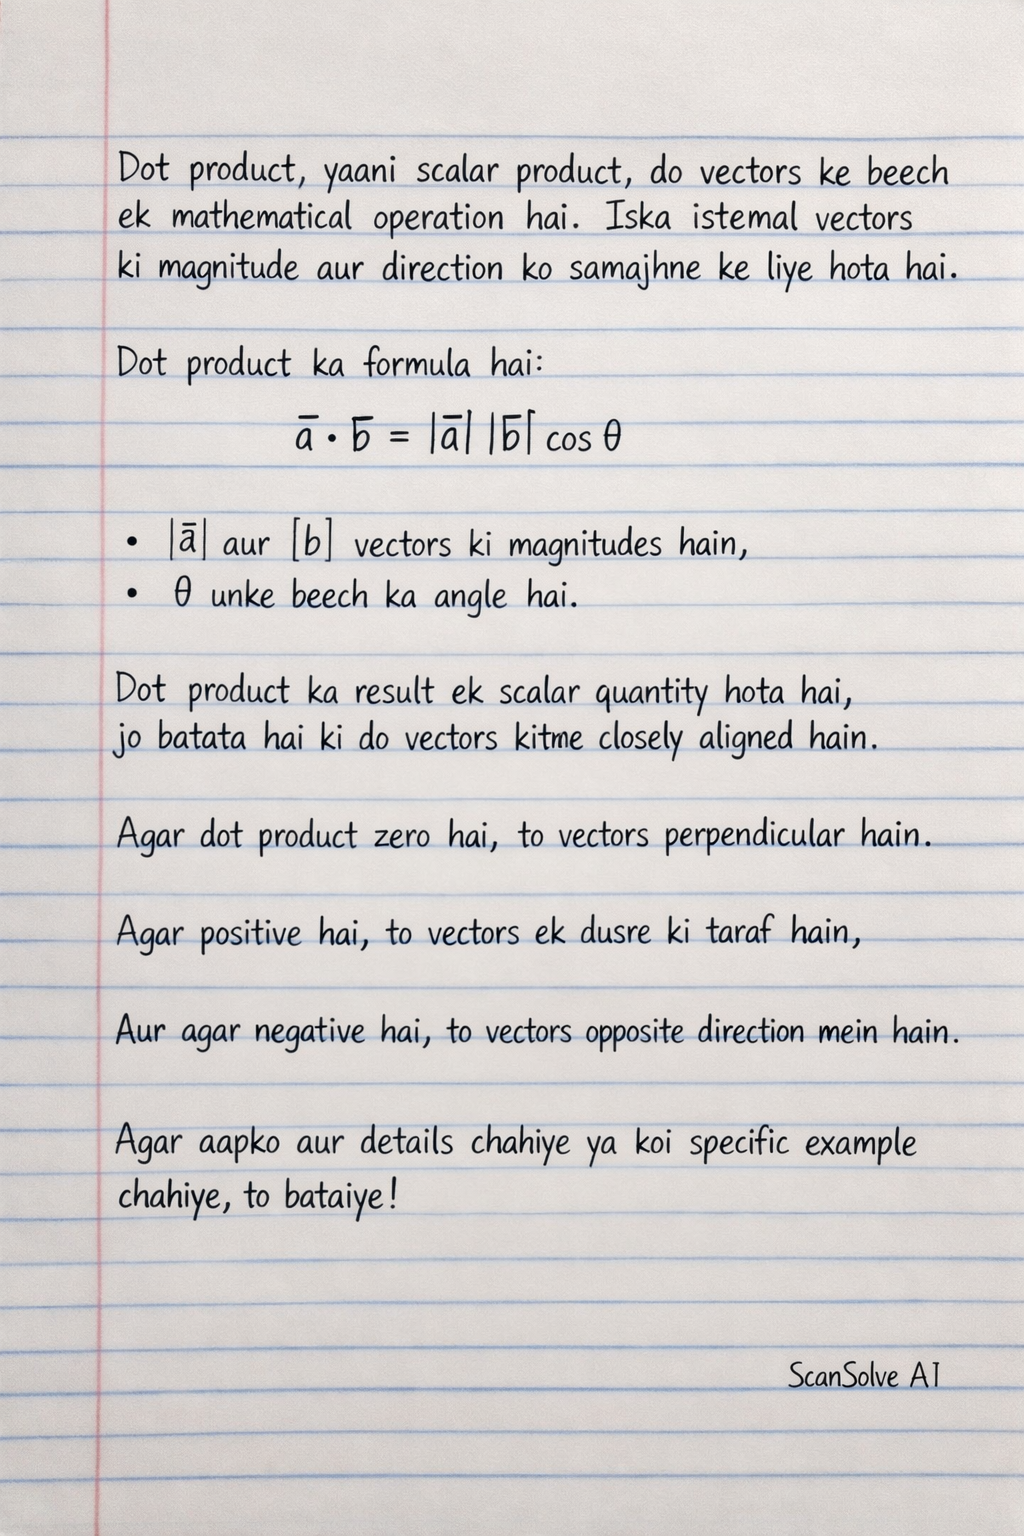 Dot product, yaani scalar product, do vectors ke beech
ek mathematical operation hai. Iska istemal vectors
ki magnitude aur direction ko samajhne ke liye hota hai.
Dot product ka formula hai:
a̅ · b̅ = |a̅| |b̅| cos θ
• |a̅| aur [b] vectors ki magnitudes hain,
• θ unke beech ka angle hai.
Dot product ka result ek scalar quantity hota hai,
jo batata hai ki do vectors kitme closely aligned hain.
Agar dot product zero hai, to vectors perpendicular hain.
Agar positive hai, to vectors ek dusre ki taraf hain,
Aur agar negative hai, to vectors opposite direction mein hain.
Agar aapko aur details chahiye ya koi specific example
chahiye, to bataiye!
ScanSolve AI